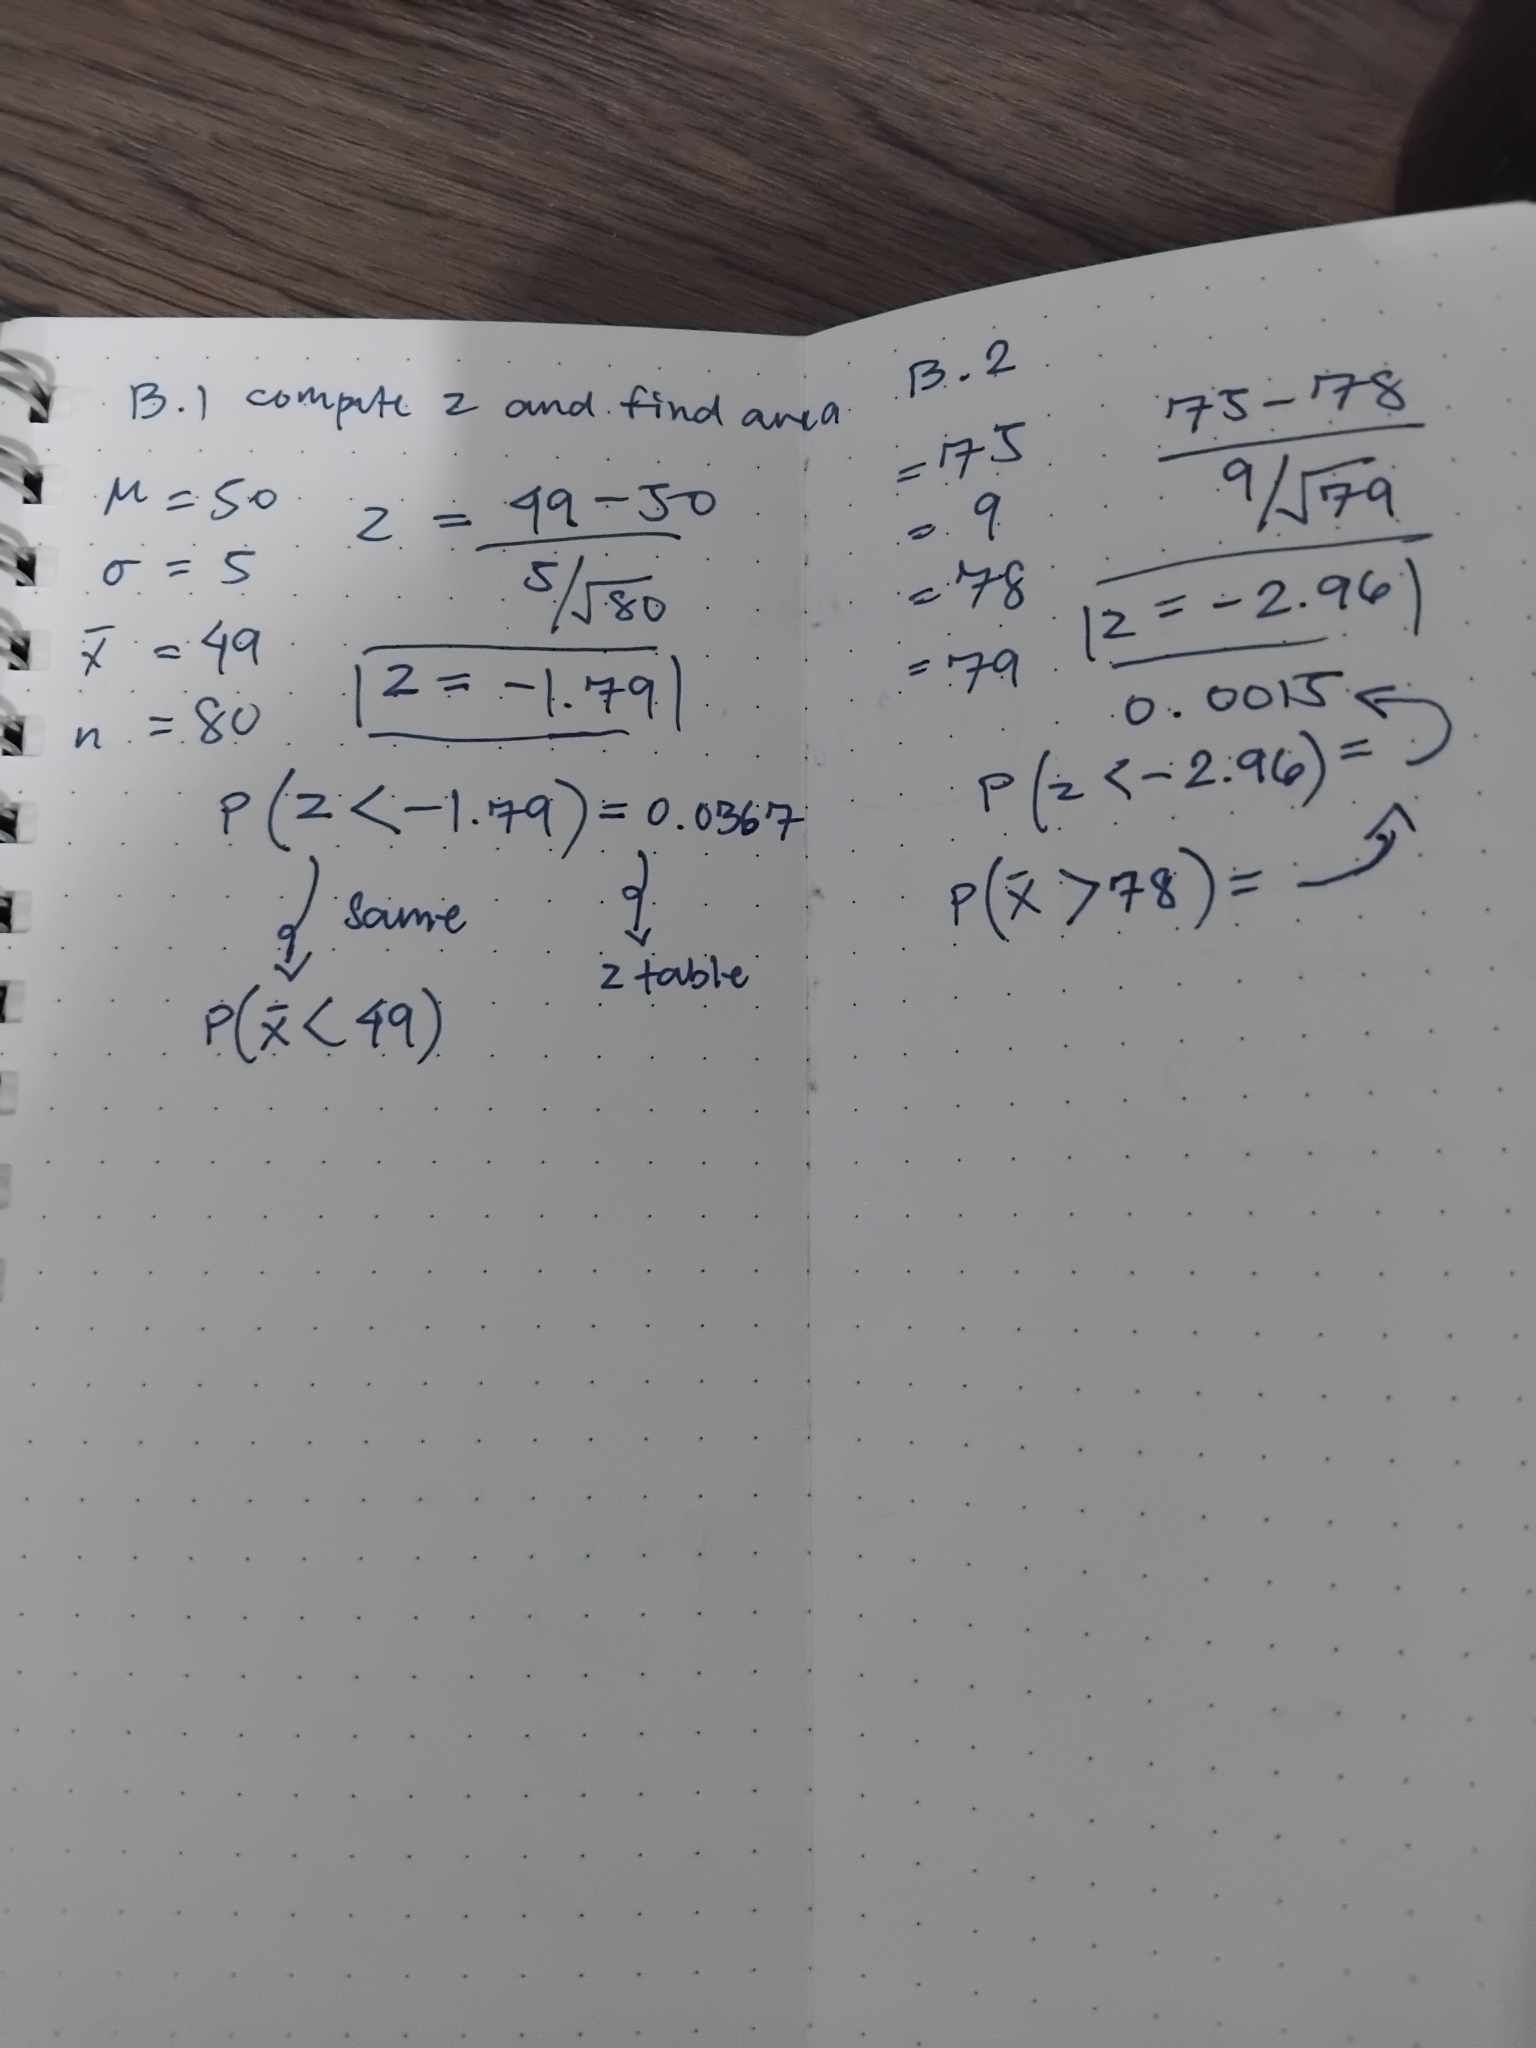 B.1 compute z and find area
μ = 50
σ = 5
x̄ = 49
n = 80
z = 49 - 50
5/√80
z = -1.79
P(z < -1.79) = 0.0367
same
z table
P(x̄ < 49)
B.2
= 75
= 9
= 78
= 79
75 - 78
9/√79
z = -2.96
0.0015
P(z < -2.96) =
P(x̄ > 78) =